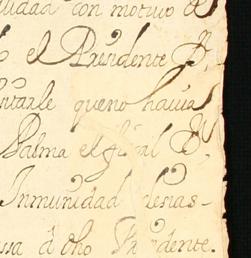 lidad con motivo de
el Presidente D.
tarle que no havia
Palma el fiscal D.
Inmunidad clesias-
sa â dho Presidente.